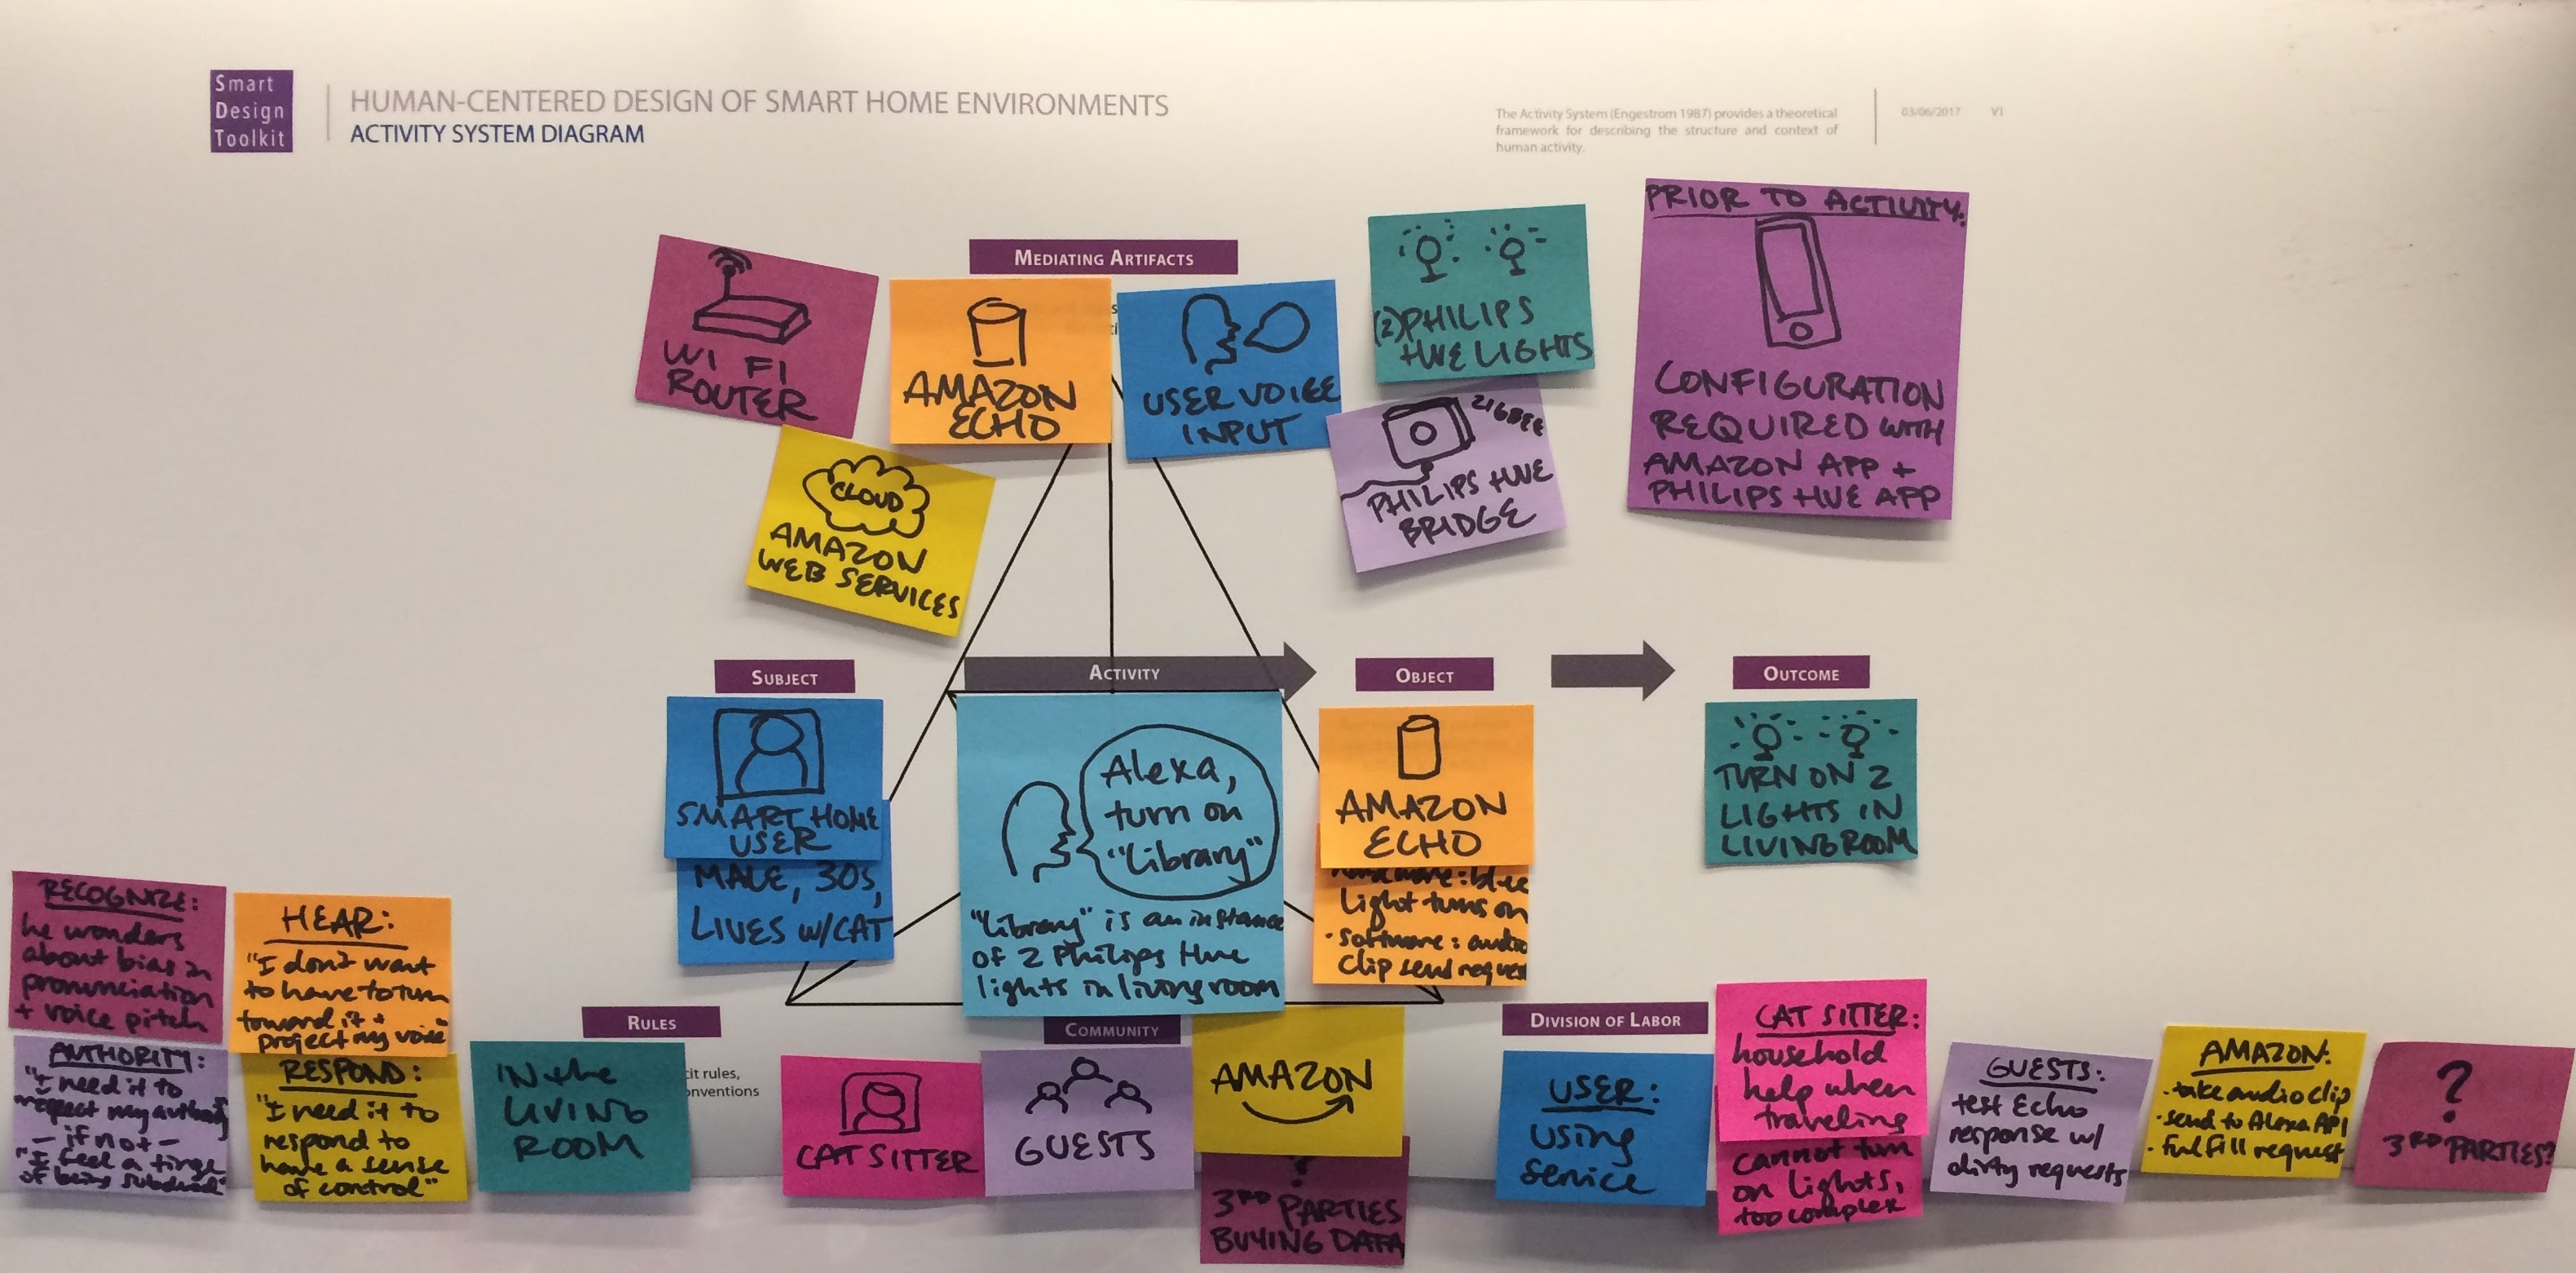 Smart
Design
Toolkit
HUMAN-CENTERED DESIGN OF SMART HOME ENVIRONMENTS
ACTIVITY SYSTEM DIAGRAM
The Activity System (Engestrom 1987) provides a theoretical
framework for describing the structure and context of
human activity.
03/06/2017
V1
MEDIATING ARTIFACTS
WI FI
ROUTER
AMAZON
ECHO
USER VOICE
INPUT
(2) PHILIPS
HUE LIGHTS
PRIOR TO ACTIVITY:
CONFIGURATION
REQUIRED WITH
AMAZON APP +
PHILIPS HUE APP
CLOUD
AMAZON
WEB SERVICES
ZIGBEE
PHILIPS HUE
BRIDGE
SUBJECT
ACTIVITY
OBJECT
OUTCOME
SMART HOME
USER
MALE, 30S,
LIVES W/CAT
Alexa,
turn on
"Library"
"Library" is an instance
of 2 Philips Hue
lights in living room
AMAZON
ECHO
light turns on
• software: audio
clip send
TURN ON 2
LIGHTS IN
LIVING ROOM
RECOGNIZE:
he wonders
about bias in
pronunciation
+ voice pitch
HEAR:
"I don't want
to have to turn
toward it +
project my voice"
AUTHORITY:
"I need it to
respect my authority
— if not —
"I feel a tinge
of being subdued"
RESPOND:
"I need it to
respond to
have a sense
of control"
RULES
cit rules,
onventions
IN the
LIVING
ROOM
COMMUNITY
CAT SITTER
GUESTS
AMAZON
?
3RD PARTIES
BUYING DATA
DIVISION OF LABOR
USER:
using
service
CAT SITTER:
household
help when
traveling
cannot turn
on lights,
too complex
GUESTS:
test Echo
response w/
dirty requests
AMAZON:
• take audio clip
• send to Alexa API
• fulfill request
?
3RD PARTIES?